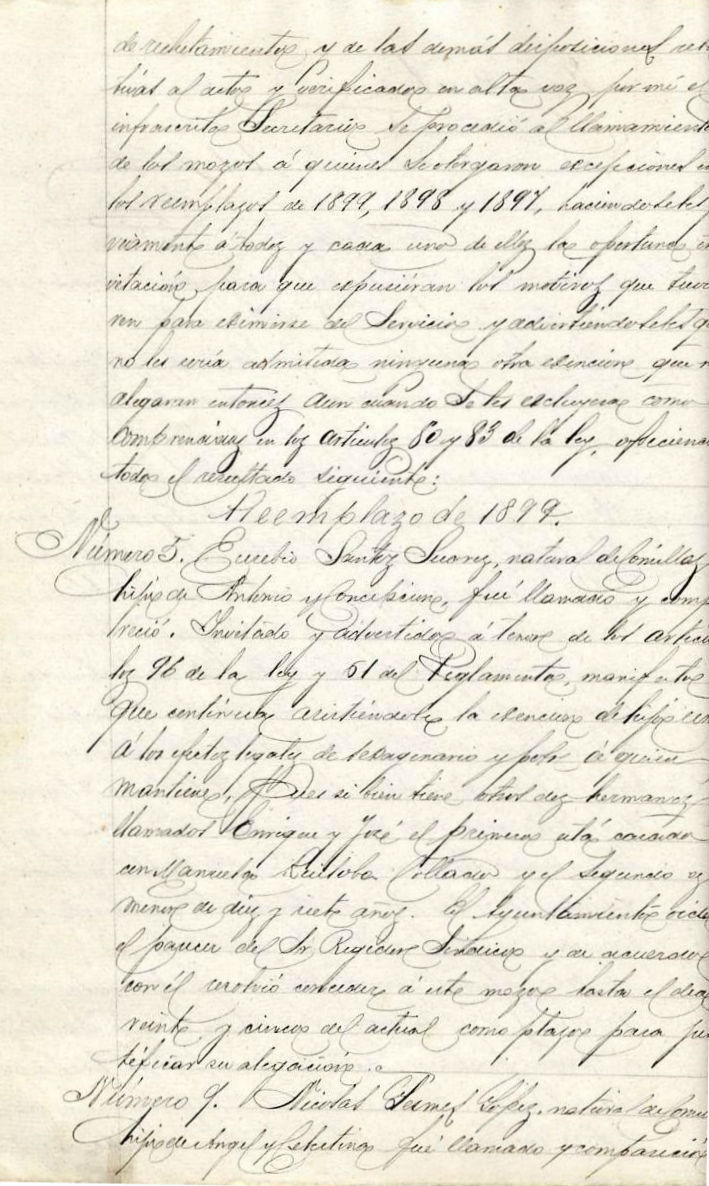 de reclutamiento y de las demás disposiciones rela
tivas al acto y verificado en alta voz por mi el
infrascrito Secretario se procedió al llamamiento
de los mozos á quienes se otorgaron excepciones en
los reemplazos de 1899, 1898 y 1897, haciendoseles p
viamente á todos y cada uno de ellos la oportuna in
vitación para que expusieran los motivos que tuvie
ren para eximirse del Servicio y advirtiendoseles q
no les sería admitida ninguna otra exención que n
alegaran entonces aun cuando se les excluyera como
comprendidos en los artículos 80 y 83 de la ley, ofreciendo
todo el resultado siguiente:
Reemplazo de 1899.
Número 5. Eusebio Santos Suarez, natural de Comillas
hijo de Antonio y Concepcion, fué llamado y comp
reció. Invitado y advertido á tenor de los artícu
los 96 de la ley y 61 del Reglamento, manifestó
que continúa asistiéndole la exención de hijo
á los efectos legales de sexagenario y pobre á quien
mantiene, Pues si bien tiene otros dos hermanos
llamados Enrique y José el primero está casado
con Manuela Ruiloba Collado y el segundo es
menor de diez y siete años. El Ayuntamiento oido
el parecer del Sr Regidor Síndico y de acuerdo
con él resolvió conceder á este mozo hasta el dia
veinte y cinco del actual como plazo para jus
tificar su alegación.
Número 9. Nicolás López, natural de Comi
hijo de Angel y Celestina fué llamado y compareció